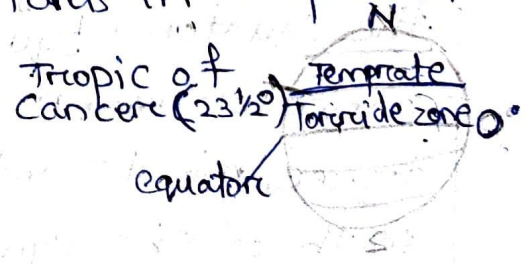 N
Tropic of
Cancere (23½°)
Temprate
Torride zone 0°
equatore
S